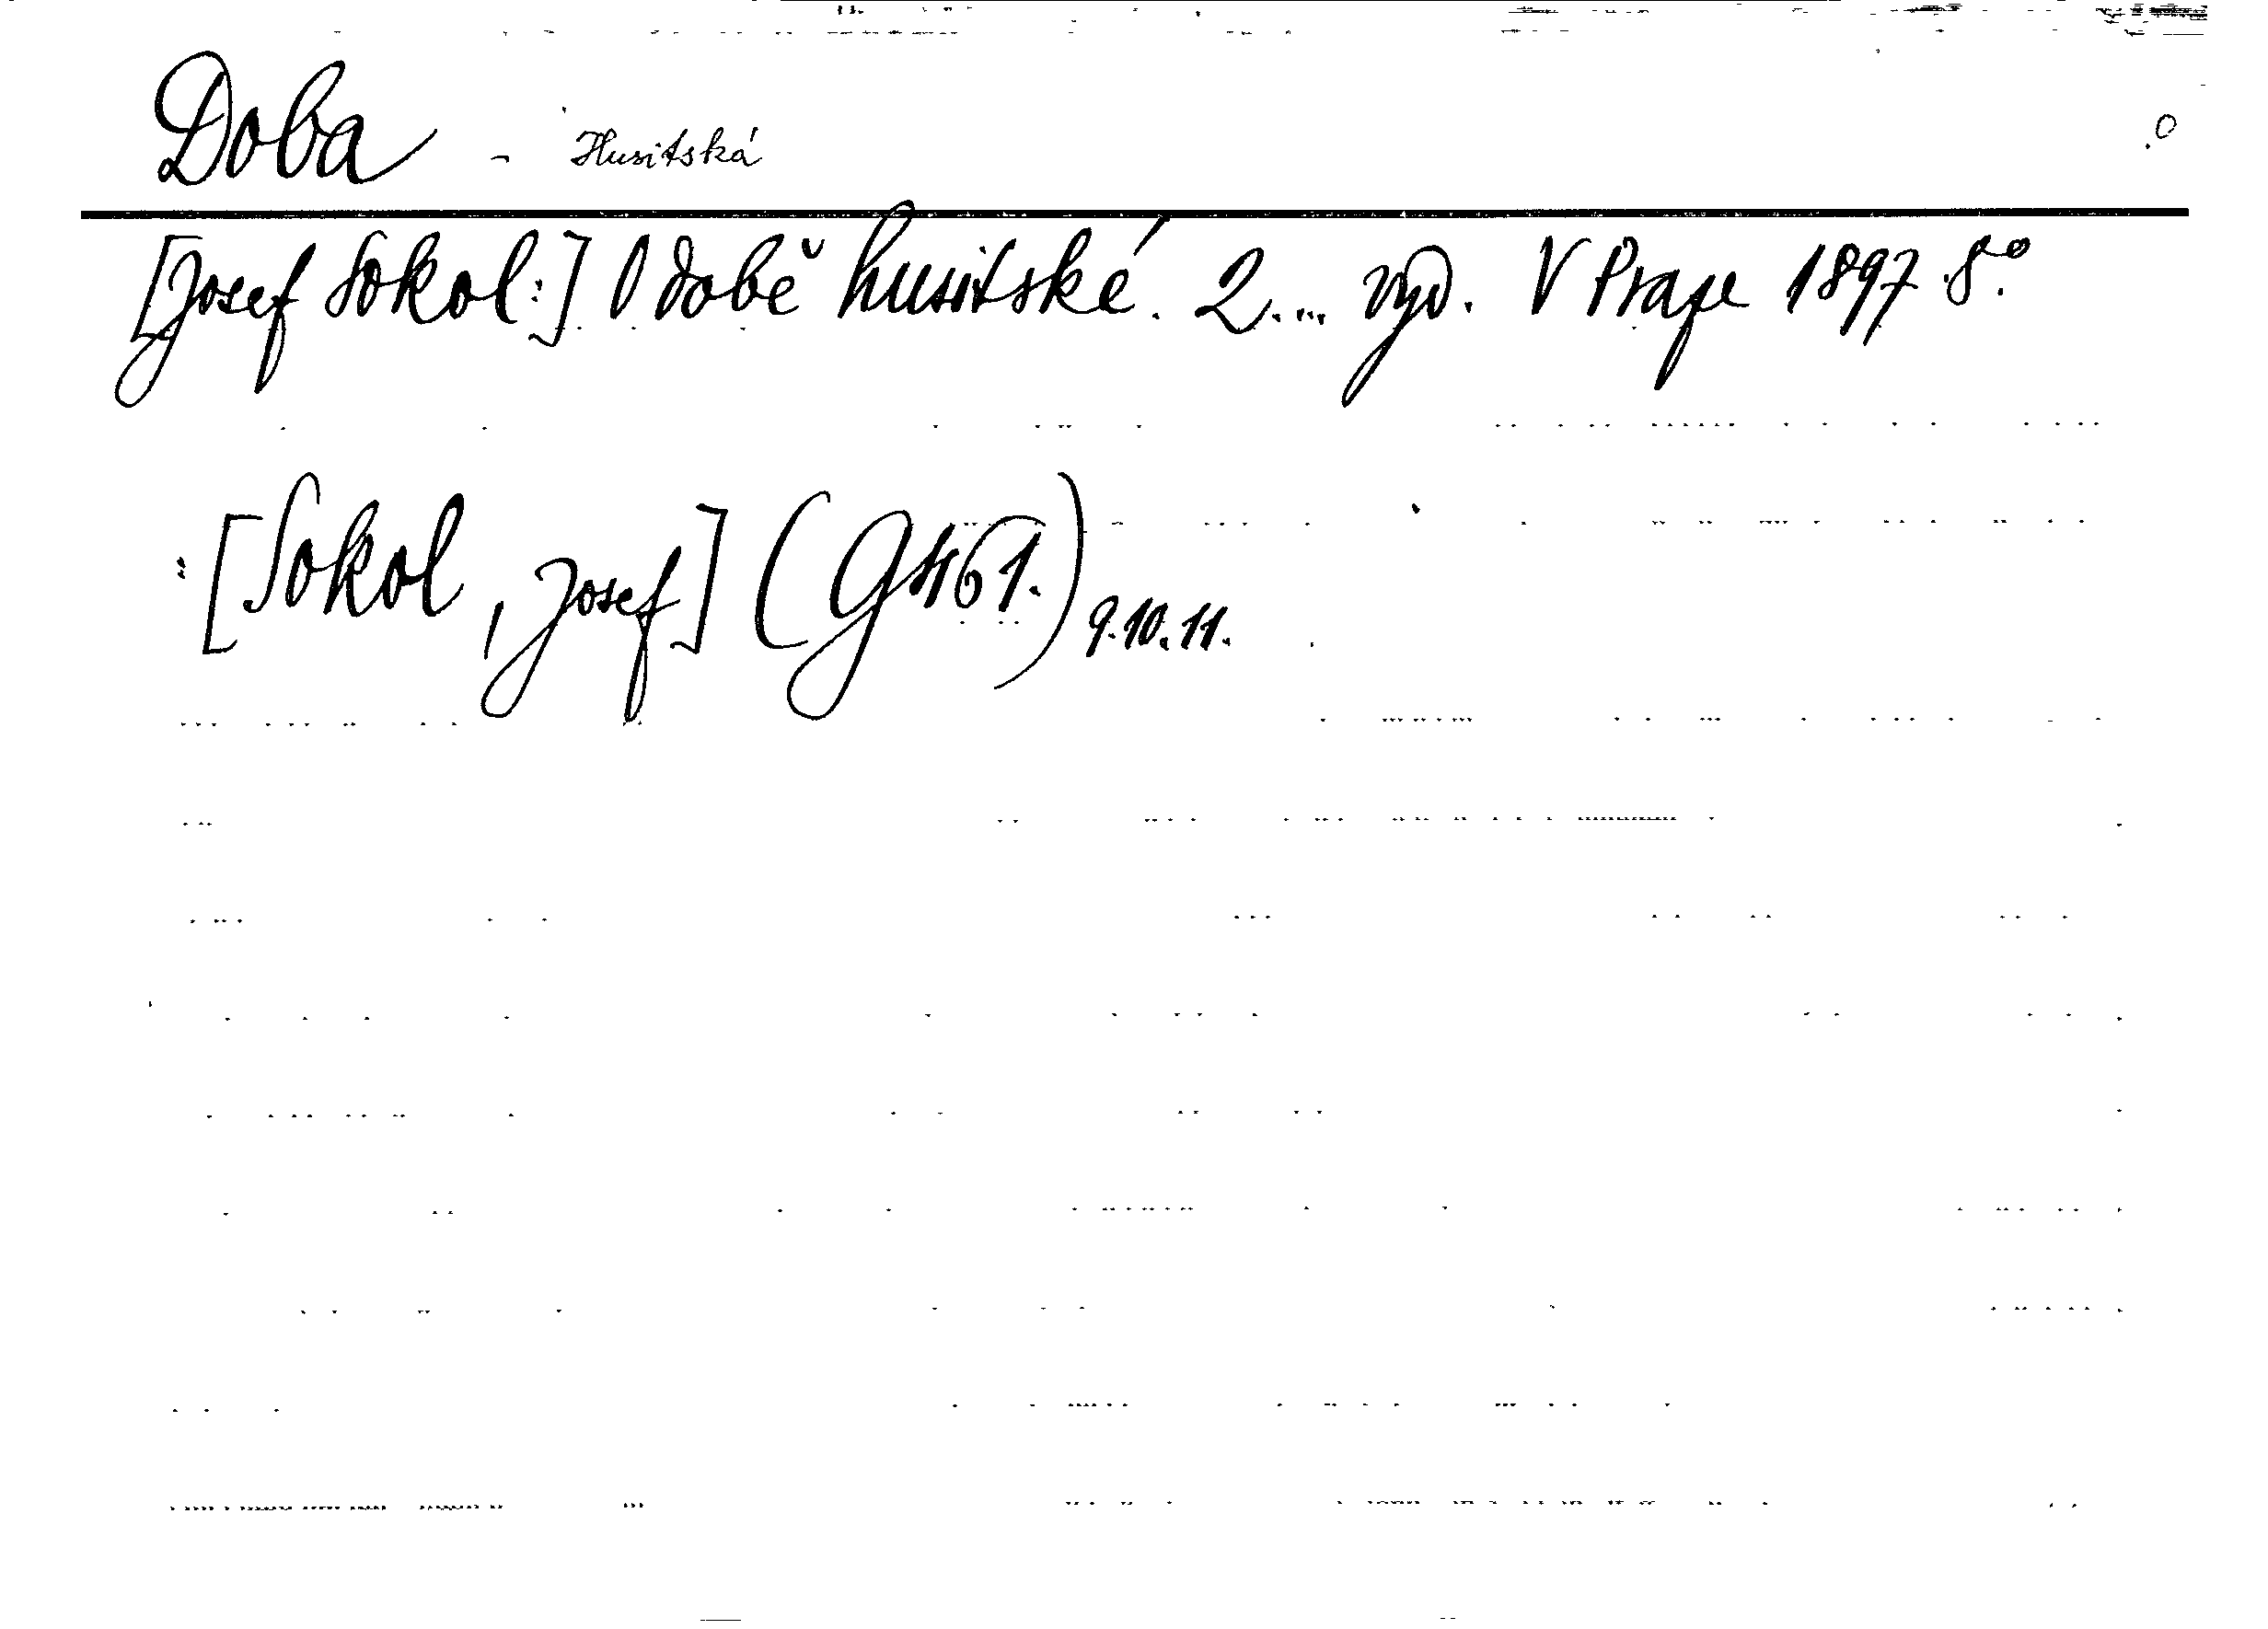 Doba - Husitská
[Josef Sokol:] O době husitské. 2... vyd. V Praze 1897. 8°.
: [Sokol, Josef] (G461.) 9.10.11.